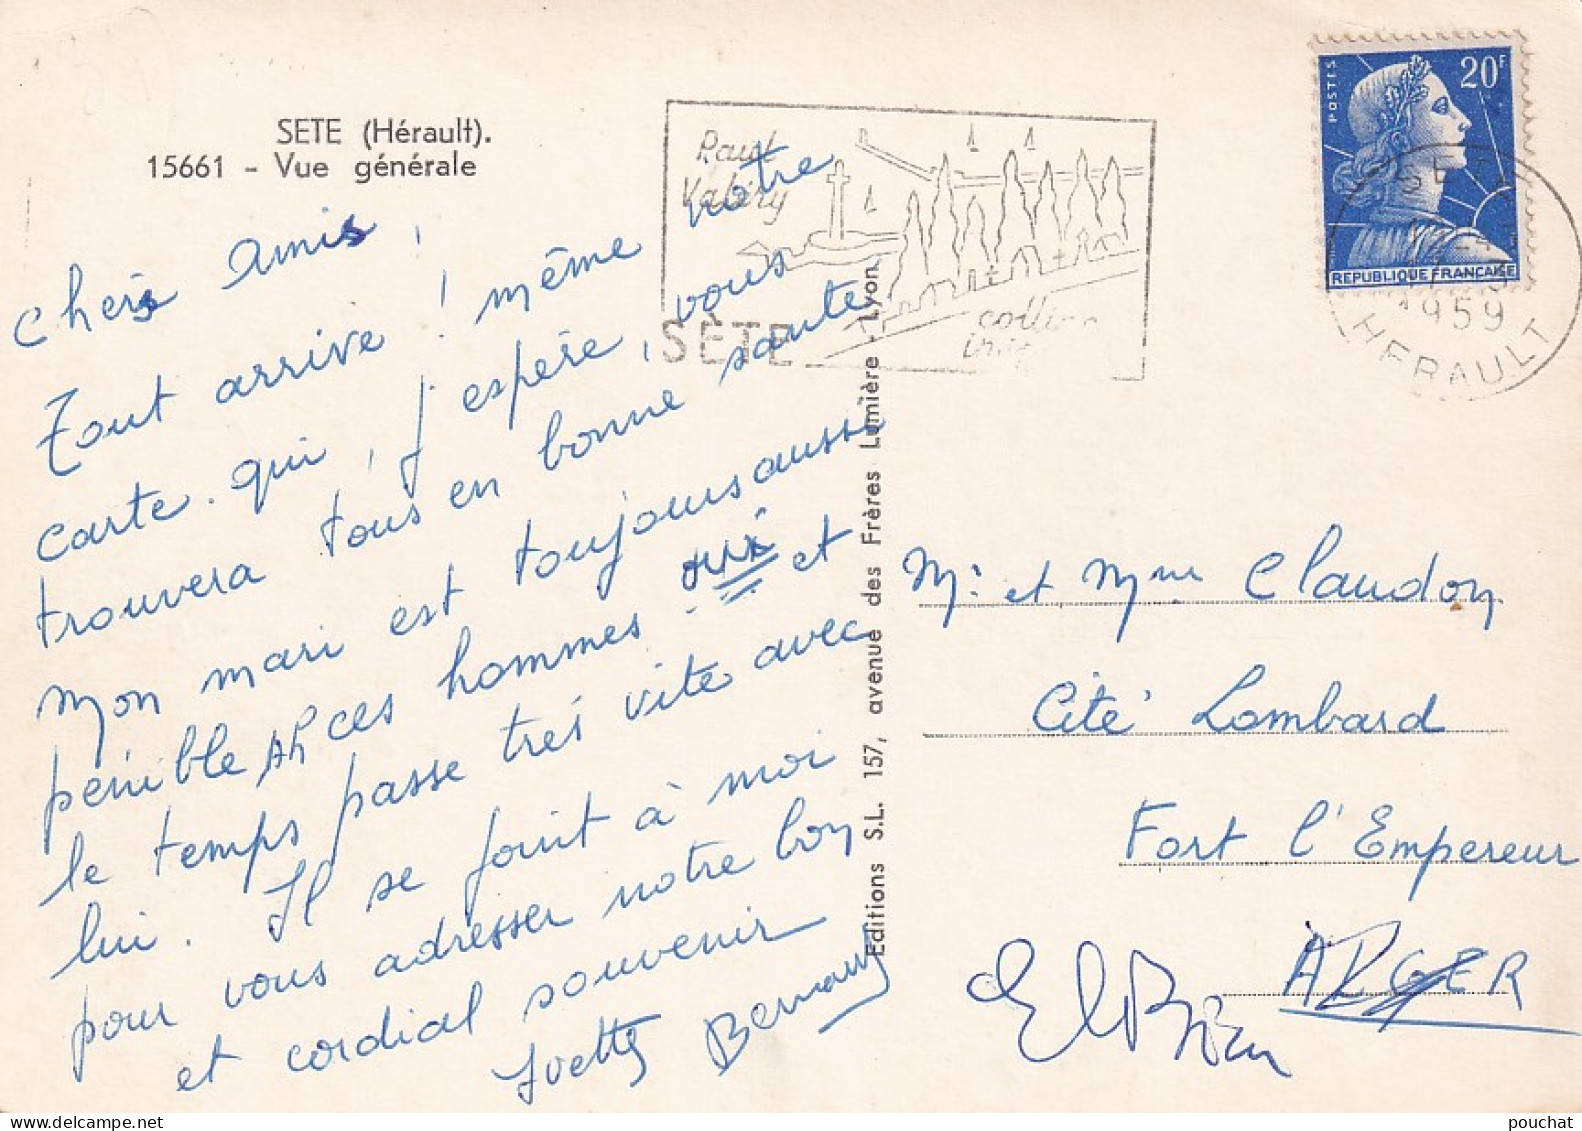 SETE (Hérault).
15661 - Vue générale
Chers Amis,
Tout arrive ! même votre
carte. qui, j'espère, vous
trouvera tous en bonne sante
Mon mari est toujours aussi
pénible Ah ces hommes. oui et
le temps passe très vite avec
lui. Il se joint à moi
pour vous adresser notre bon
et cordial souvenir
Yvette Bernard
Editions S.L. 157, avenue des Frères Lumière - Lyon
Paul
Valéry
SÈTE
colline
POSTES
20F
REPUBLIQUE FRANÇAISE
SETE
1959
HERAULT
Mr. et Mme Claudon
Cité Lombard
Fort l'Empereur
ALGER
El Biar
pouchat